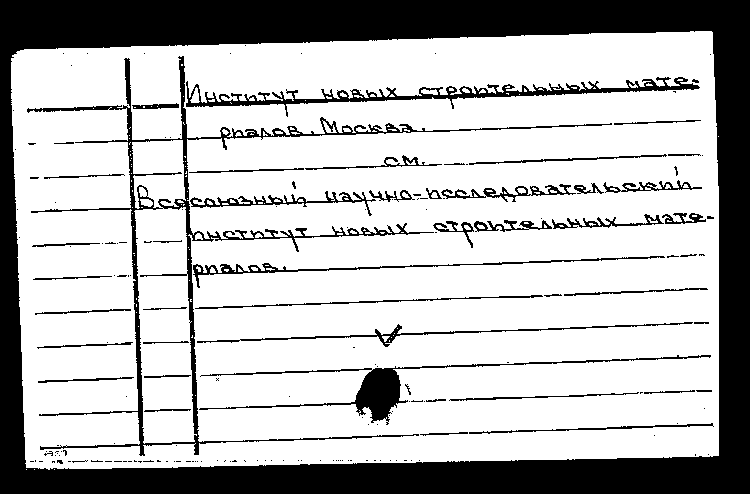 Институт новых строительных мате-
риалов. Москва.
см.
Всесоюзный научно-исследовательский
институт новых строительных мате-
риалов.